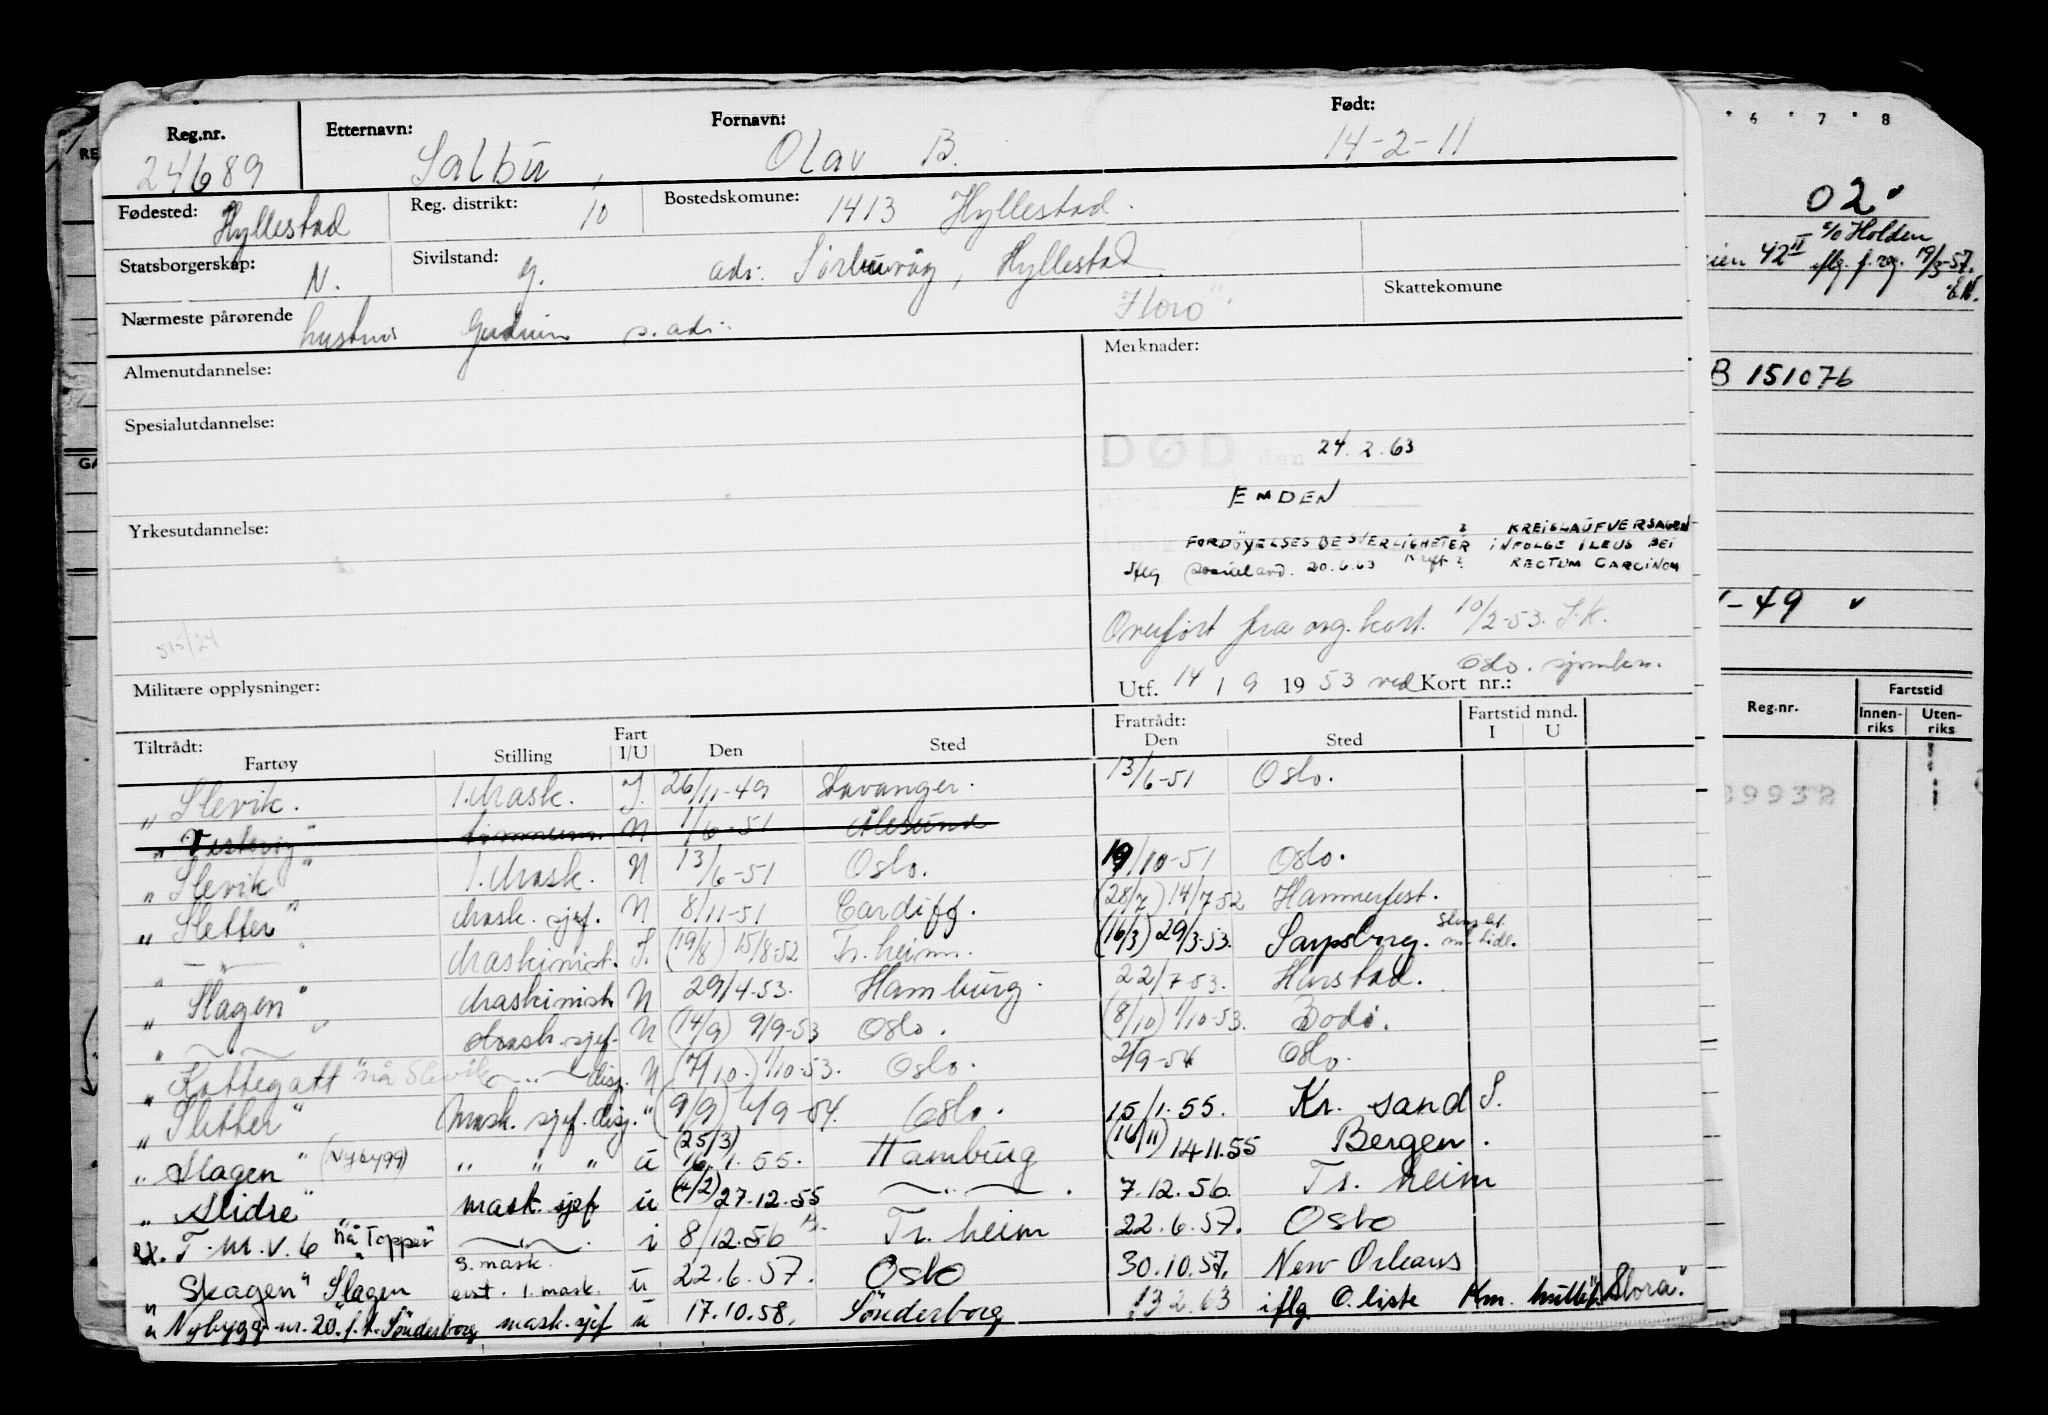 Reg.nr. Etternavn: Fornavn: Født:
24689 Salbu, Olav B. 14-2-11
Fødested: Hyllestad Reg. distrikt: 10 Bostedskomune: 1413 Hyllestad.
Statsborgerskap: N. Sivilstand: g. adr. Sørbuvåg, Hyllestad
Nærmeste pårørende hustru Gudrun s. adr. "Florø" Skattekomune
Almenutdannelse: Merknader:
Spesialutdannelse:
DØD den 24.2.63
EMDEN
Yrkesutdannelse:
FORDØYELSESBESVERLIGHETER ? KREISLAUFVERSAGEN
Kreft? INFOLGE ILEUS BEI
iflg 20.6.63 RECTUM CARCINOM
Overført fra org. kort. 10/2-53. S.K.
515/24
Oslo. sjømkr.
Militære opplysninger: Utf. 14 / 9 1953 ved Kort nr.:
Tiltrådt: Fratrådt: Fartstid mnd.
Fartøy Stilling Fart I/U Den Sted Den Sted I U
"Slevik. 1. Mask. I. 26/11-49 Stavanger. 13/6-51 Oslo.
"Vestvåg" tømmerm. N 1/6-51 Ålesund
"Slevik" 1. Mask. N 13/6-51 Oslo. 19/10-51 Oslo.
"Sletter" Mask. sjef. N 8/11-51 Cardiff. (28/7) 14/7-52 Hammerfest.
" — " Maskinist. I. (19/8) 15/8-52 Tr.heim. (16/3) 29/3-53. Sarpsborg.
"Slagen" Maskinist N 29/4-53. Hamburg. 22/7-53. Harstad.
" — " Mask. sjef. N (14/9) 9/9-53 Oslo. (8/10) 1/10-53. Bodø.
"Kattegatt" nå Slevik — " — disp. N (7/10.) 1/10-53. Oslo. 2/9-54 Oslo.
"Sletter" Mask. sjef. disp. " (9/9) 4/9-54. Oslo. 15/1.55. Kr. sand S.
"Slagen" (Nybygg) " " " u (25/3) 16.1.55. Hamburg (16/11) 14.11.55 Bergen.
"Slidre" mask. sjef u (4/2) 27.12.55 — " — . 7.12.56. Tr. heim
ex. T.M.V. 6 nå Topper" — " — . i 8/12.56 Tr. heim 22.6.57. Oslo
Skagen" Slagen 3. mask. erst. 1. mask. u 22.6.57. Oslo 30.10.57. New Orleans
" Nybygg nr. 20" f.k. Sønderborg mask. sjef u 17.10.58. Sønderborg 13.2.63 iflg. O. liste Km. Slora".
6 7 8
02
c/o Holden
eien 42 II iflg. f. rg. 19/3-57.
B 151076
-49
Reg.nr. Fartstid
Innenriks Utenriks
39938